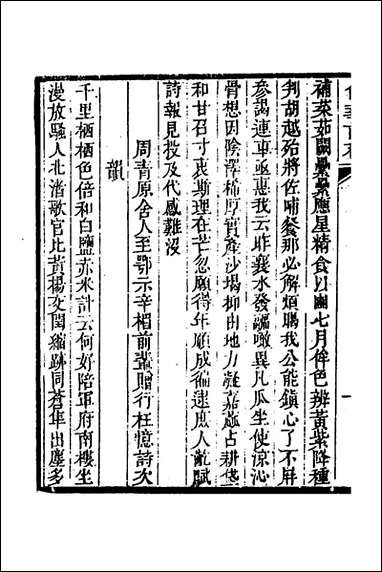 補菜茹闕纍纍應星精食以圖七月侔色辨黃紫降種
判胡越殆將佐哺餐那必解煩暍我公能鎮心了不屑
參謁連車亟惠我云昨襄水發疆暾異凡瓜坐使涼沁
骨想因陰澤稀厚實產沙場抑由地力凝嘉應占耕垡
和甘召寸衷斯理在芒忽願得年順成徧逮庶人齕賦
詩報見投及代感難沒
周青原舍人至鄂示辛楣前輩贈行枉憶詩次
韻
千里栖栖色倍和白鹽赤米計云何好陪軍府南樓坐
漫放騷人北渚歌官比黃楊欣閏縮跡同蒼隼出塵多